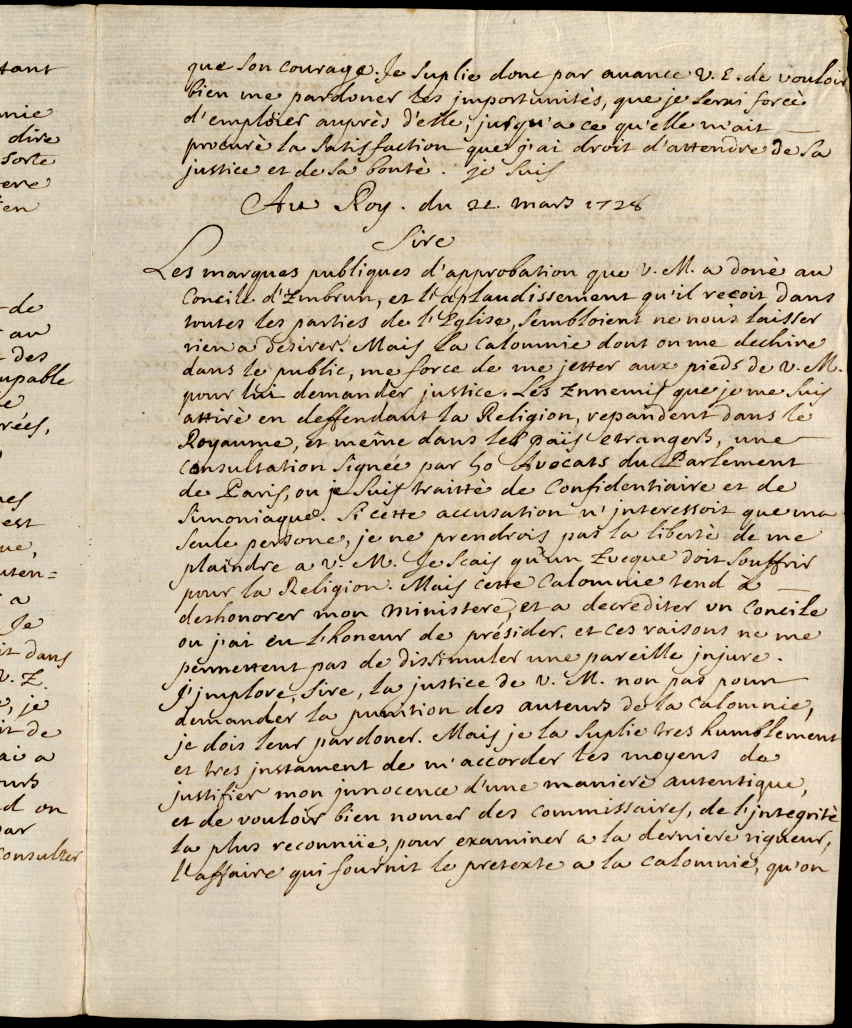 tant
nie
dire
sorte
ere
en
de
au
des
upable
e
rées,
nes
est
ue,
uten=
a
Je
it dans
V. E.
e, je
it de
ai a
urs
d on
par
consulter
que son courage. Je suplie donc par auance V. E. de vouloir
bien me pardoner les jmportunités, que je serai forcé
d'emploier auprès d'elle, jusqu'a ce qu'elle m'ait
procuré la satisfaction que j'ai droit d'attendre de sa
justice et de sa bonté. je suis
Au Roy. du 22. mars 1728
Sire
Les marques publiques d'approbation que V. M. a doné au
Concile d'Embrun, et l'aplaudissement qu'il reçoit dans
toutes les parties de l'Eglise, sembloient ne nous laisser
rien a desirer. Mais la calomnie dont on me dechire
dans le public, me force de me jetter aux pieds de V. M.
pour lui demander justice. Les Ennemis que je me suis
attiré en deffendant la Religion, repandent dans le
Royaume, et même dans les païs etrangers, une
consultation signée par 50 Avocats du Parlement
de Paris, ou je suis traitté de Confidentiaire et de
Simoniaque. Si cette accusation n'interessoit que ma
seule persone, je ne prendrois pas la liberté de me
plaindre a V. M. Je scais qu'un Eveque doit souffrir
pour la Religion. Mais cette calomnie tend à
deshonorer mon ministere, et a decrediter un Concile
ou j'ai eu l'honeur de présider. et ces raisons ne me
permettent pas de dissimuler une pareille jnjure.
J'jmplore, Sire, la justice de V. M. non pas pour
demander la punition des auteurs de la calomnie,
je dois leur pardoner. Mais je la suplie tres humblement
et tres jnstament de m'accorder les moyens de
justifier mon jnnocence d'une maniere autentique,
et de vouloir bien nomer des commissaires, de l'jntegrité
la plus reconnüe, pour examiner a la derniere rigueur,
l'affaire qui fournit le pretexte a la calomnie, qu'on